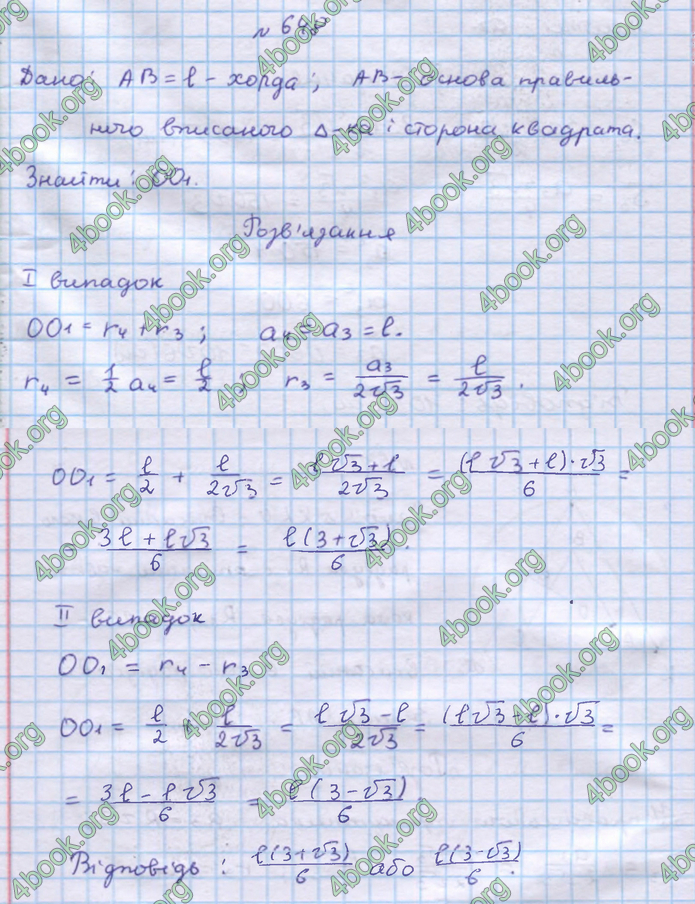 Дано: AB = l - хорда; AB - основа правиль-
ного вписаного Δ-ка і сторона квадрата.
Знайти: OO₁.
Розв'язання
I випадок
OO₁ = r₄ + r₃; a₄ = a₃ = l.
r₄ = 1/2 a₄ = l/2; r₃ = a₃/2√3 = l/2√3.
OO₁ = l/2 + l/2√3 = l√3+l/2√3 = (l√3+l)·√3/6 =
3l+l√3/6 = l(3+√3)/6.
II випадок
OO₁ = r₄ - r₃
OO₁ = l/2 l/2√3 = l√3-l/2√3 = (l√3-l)·√3/6 =
= 3l-l√3/6 = l(3-√3)/6
Відповідь: l(3+√3)/6 або l(3-√3)/6.
4book.org